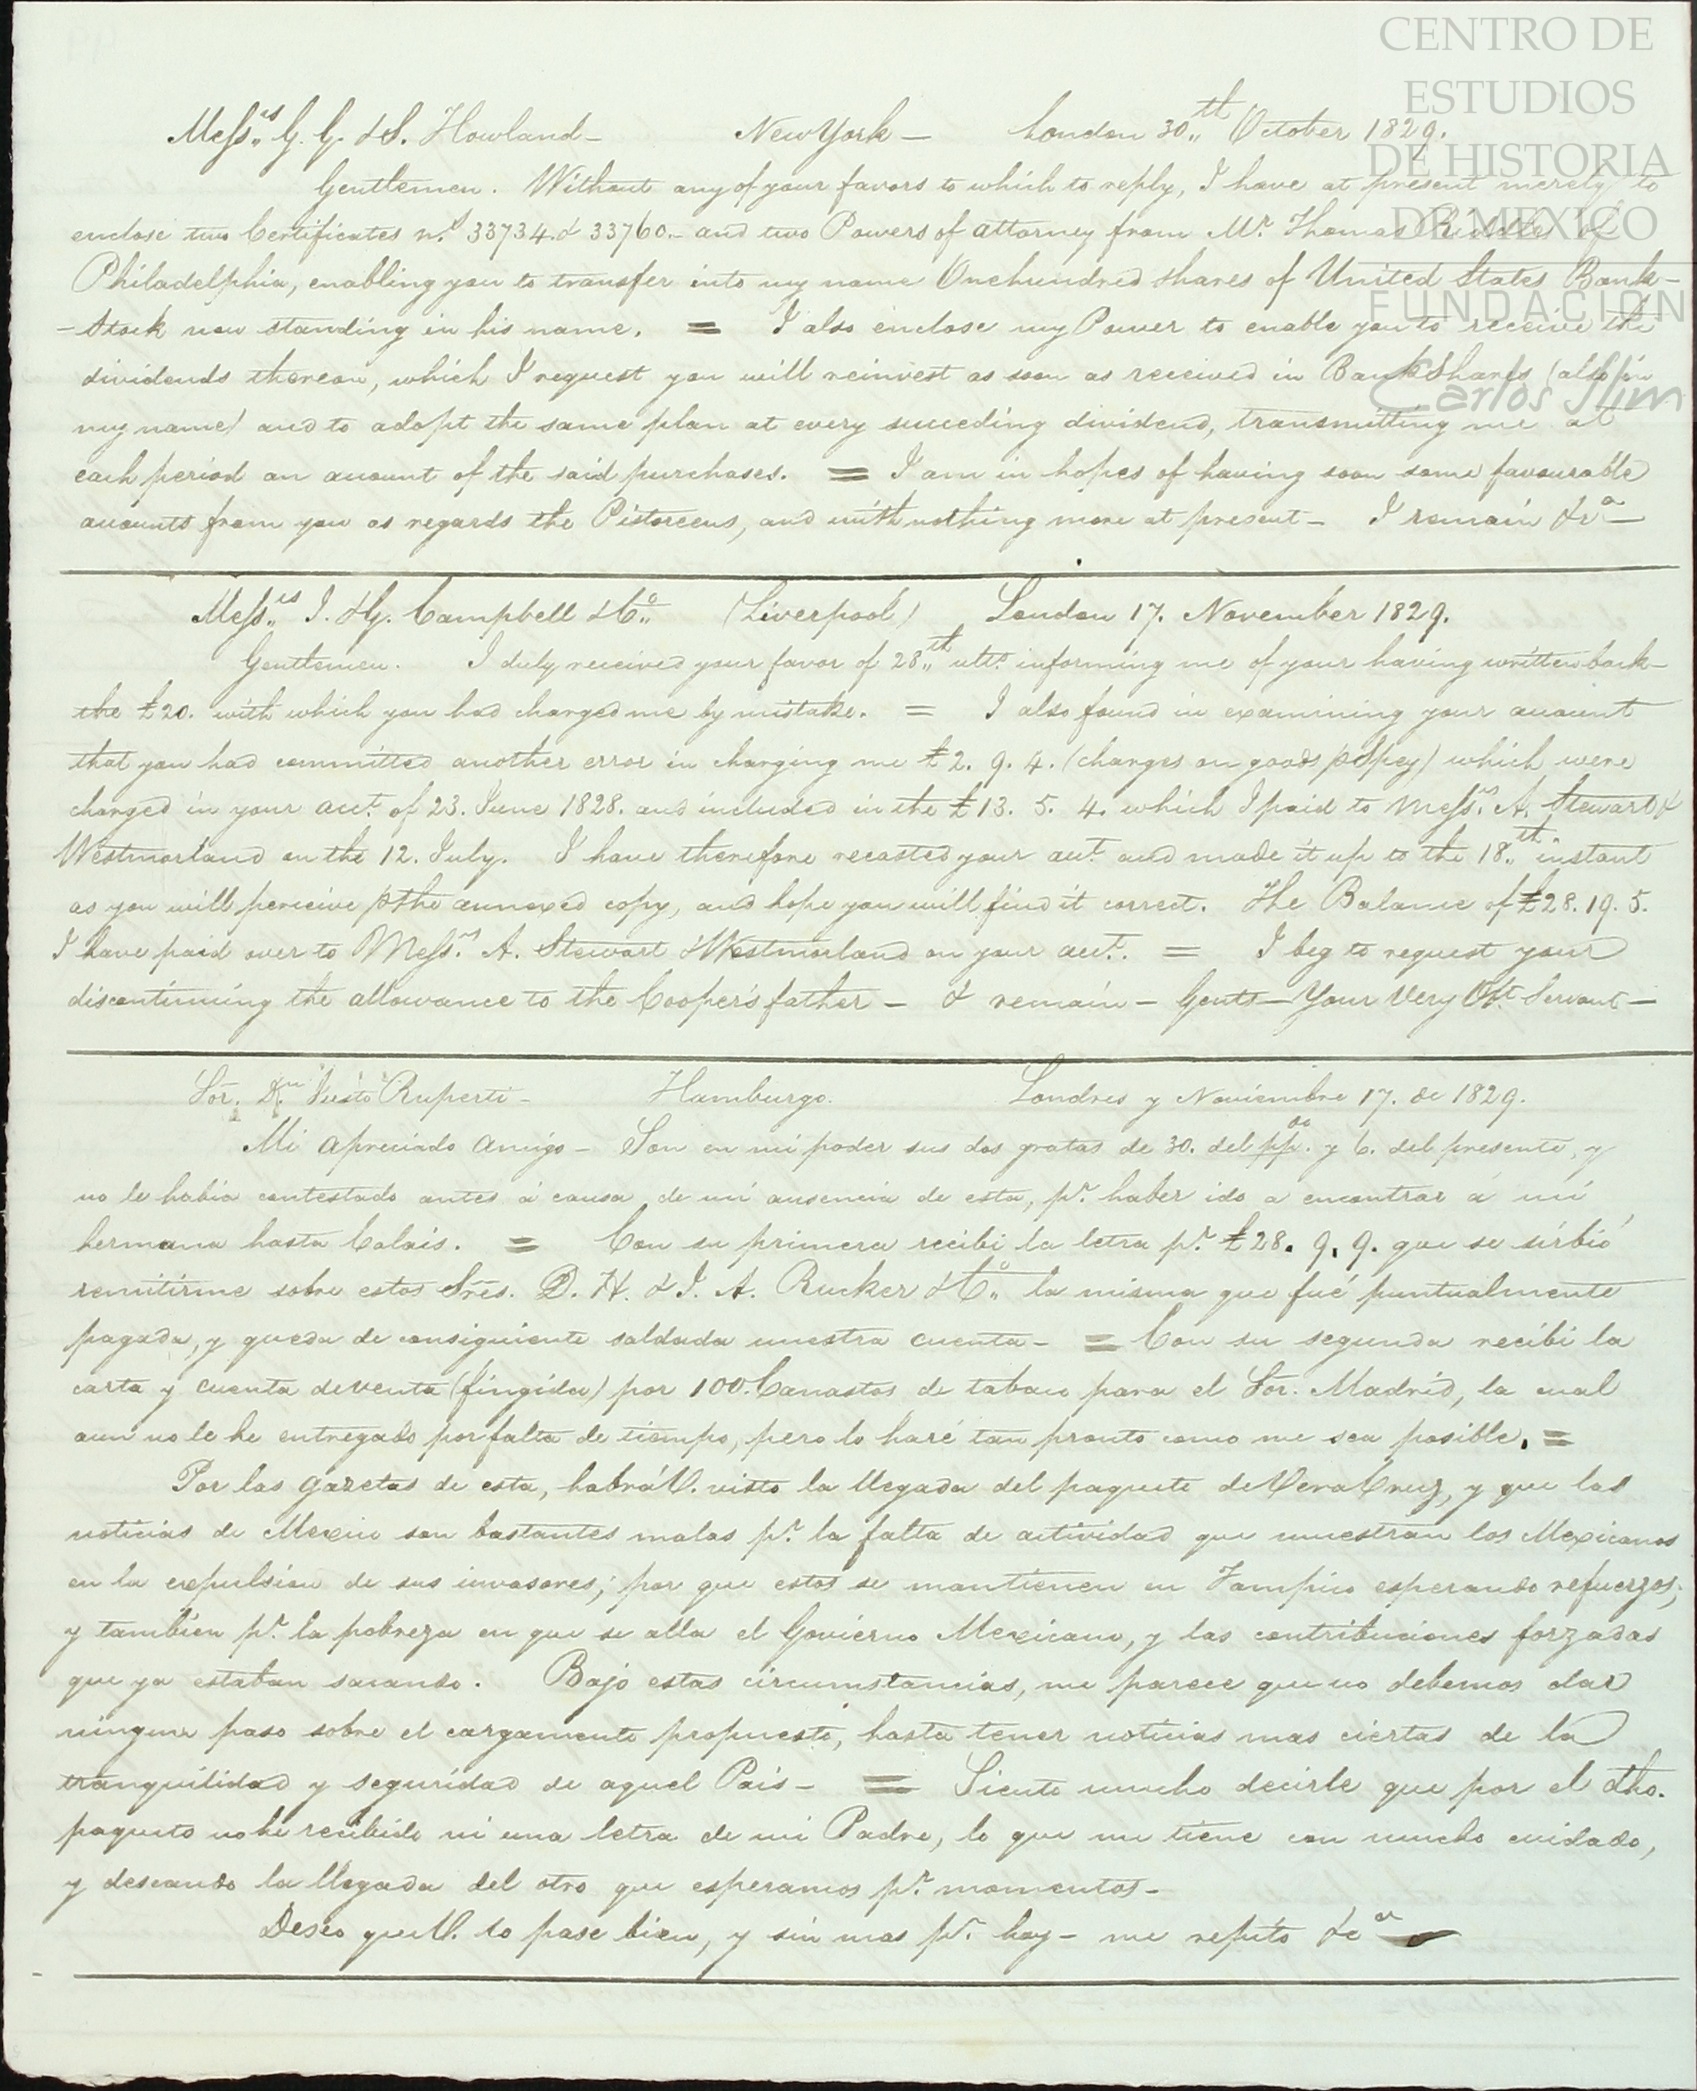 CENTRO DE
ESTUDIOS
DE HISTORIA
DE MEXICO
FUNDACION
Carlos Slim
Mess.rs G. G. & S. Howland – New York – London 30.th October 1829.
Gentlemen. Without any of your favors to which to reply, I have at present merely to
enclose two Certificates n.s 33734. & 33760. – and two Powers of attorney from Mr. Thomas Biddle of
Philadelphia, enabling you to transfer into my name One hundred shares of United States Bank-
-Stock now standing in his name. = I also enclose my Power to enable you to receive the
dividends thereon, which I request you will reinvest as soon as received in Bank Shares (also in
my name) and to adopt the same plan at every succeding dividend, transmitting me at
each period an account of the said purchases. = I am in hopes of having soon some favourable
accounts from you as regards the Pistoreens, and with nothing more at present – I remain &c.a –
Mess.rs J. & G. Campbell & Co. (Liverpool) London 17. November 1829.
Gentlemen. I duly received your favor of 28.th ulto. informing me of your having written back-
the £20. with which you had charged me by mistake. = I also found in examining your account
that you had committed another error in charging me £2. 9. 4. (charges on goods p Spey) which were
charged in your acct. of 23. June 1828. and included in the £13. 5. 4. which I paid to Mess.rs A. Stewart &
Westmorland on the 12. July. I have therefore recasted your acct. and made it up to the 18.th instant
as you will perceive p the annexed copy, and hope you will find it correct. The Balance of £28. 19. 5.
I have paid over to Mess.rs A. Stewart & Westmorland on your acct. = I beg to request your
discontinuing the allowance to the Cooper's father – & remain – Gents – Your Very Obt. Servant –
Sor. Dn. Justo Ruperti – Hamburgo. Londres y Noviembre 17. de 1829.
Mi apreciado amigo – Son en mi poder sus dos gratas de 30. del pp.do y 6. del presente, y
no le habia contestado antes á causa de mi ausencia de esta, pr. haber ido a encontrar á mi
hermana hasta Calais. = Con su primera recibi la letra pr. £28. 9. 9. que se sirbió
remitirme sobre estos Sres. D. H. & J. A. Rucker & Co. la misma que fué puntualmente
pagada, y queda de consiguiente saldada nuestra cuenta – = Con su segunda recibi la
carta y cuenta de venta (fingida) por 100. Canastos de tabaco para el Sor. Madrid, la cual
aun no le he entregado por falta de tiempo, pero lo haré tan pronto como me sea posible. =
Por las gazetas de esta, habrá V. visto la llegada del paquete de Vera Cruz, y que las
noticias de Mexico son bastantes malas pr. la falta de actividad que muestran los Mexicanos
en la expulsion de sus invasores; por que estos se mantienen en Tampico esperando refuerzos;
y tambien pr. la pobreza en que se alla el Govierno Mexicano, y las contribuciones forzadas
que ya estaban sacando. Bajo estas circumstancias, me parece que no debemos dar
ningun paso sobre el cargamento propuesto, hasta tener noticias mas ciertas de la
tranquilidad y seguridad de aquel Pais – = Siento mucho decirle que por el dho.
paquete no he recibido ni una letra de mi Padre, lo que me tiene con mucho cuidado,
y deseando la llegada del otro que esperamos pr. momentos –
Deseo que V. lo pase bien, y sin mas pr. hoy – me repito &c.a